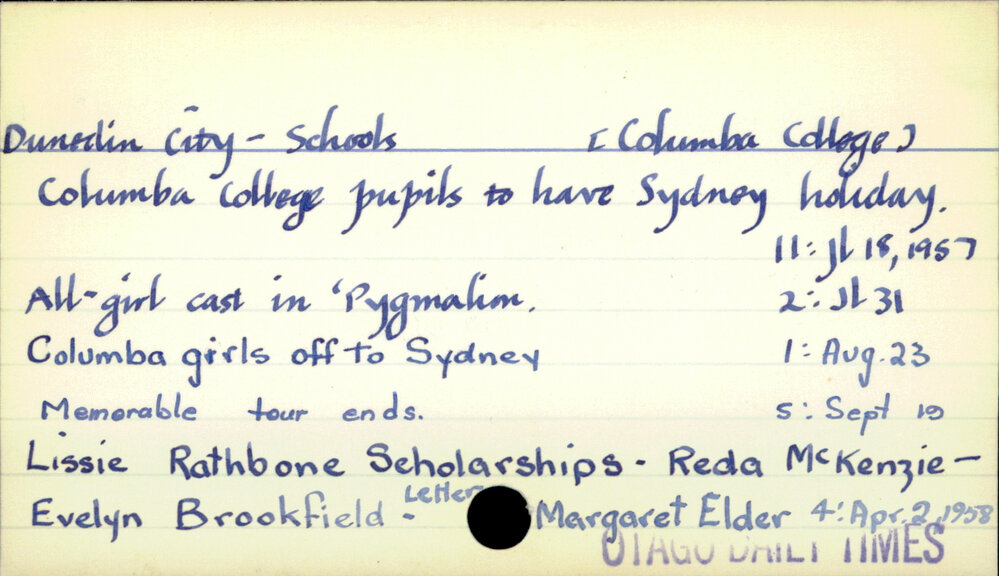 Dunedin City - Schools [Columba College]
Columba College pupils to have Sydney holiday.
11: Jl 18, 1957
All-girl cast in 'Pygmalion. 2: Jl 31
Columba girls off to Sydney 1: Aug. 23
Memorable tour ends. 5: Sept 10
Lissie Rathbone Scholarships - Reda McKenzie -
Evelyn Brookfield - Letter Margaret Elder 4: Apr. 2, 1958
OTAGO DAILY TIMES